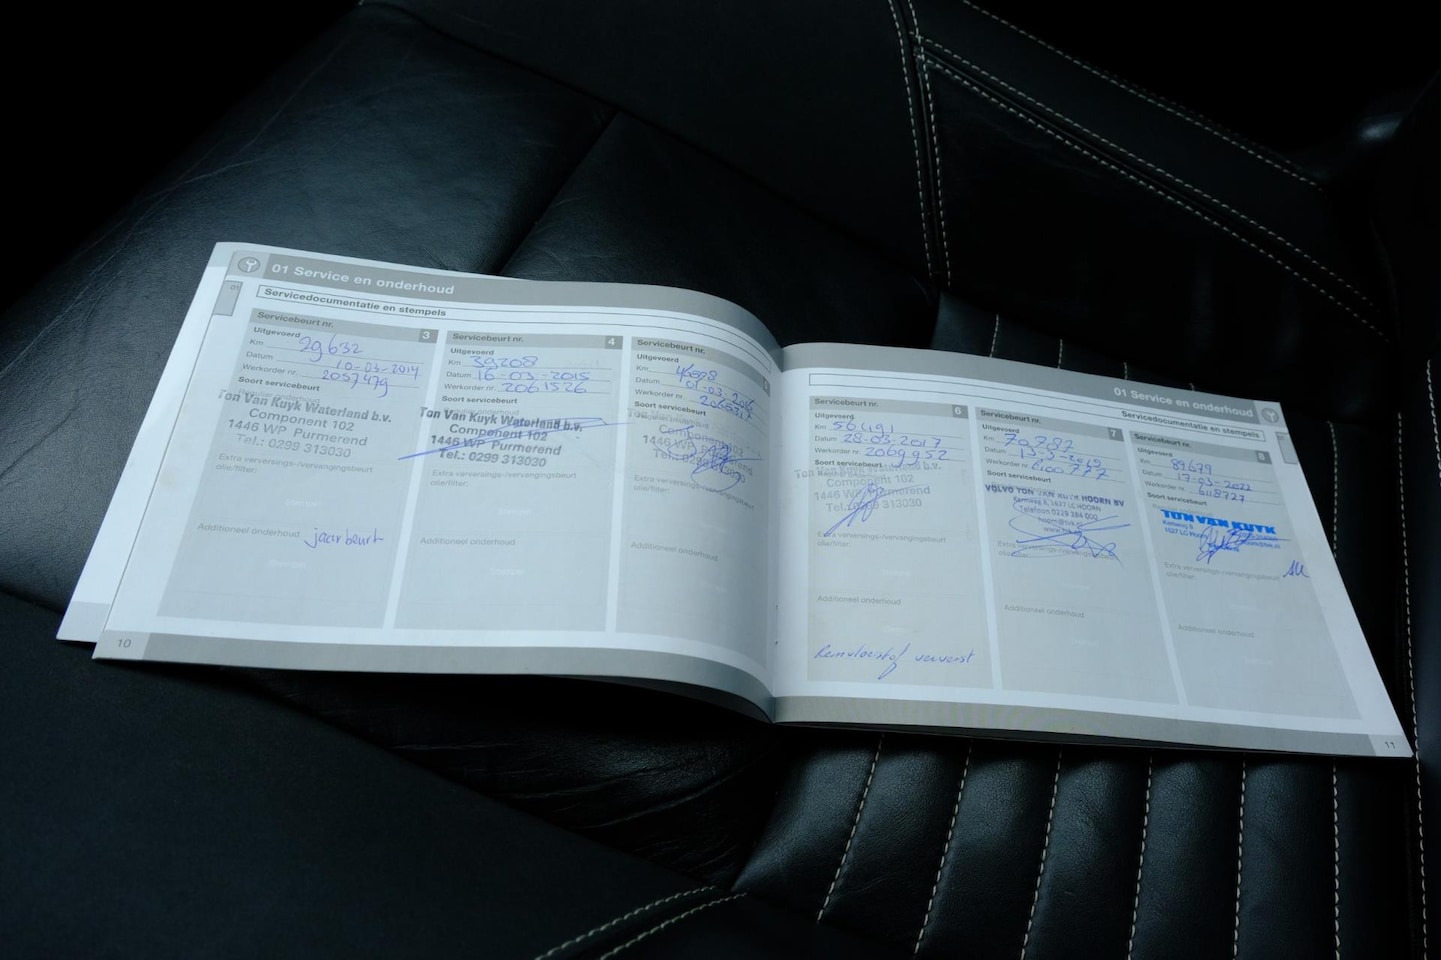 01 Service en onderhoud
Servicedocumentatie en stempels
01
Servicebeurt nr. 3
Uitgevoerd
Km 29632
Datum 10-03-2014
Werkorder nr. 2057479
Soort servicebeurt
Ton Van Kuyk Waterland b.v.
Component 102
1446 WP Purmerend
Tel.: 0299 313030
Extra verversings-/vervangingsbeurt
olie/filter:
Additioneel onderhoud
jaarbeurt
Servicebeurt nr. 4
Uitgevoerd
Km 39208
Datum 16-03-2015
Werkorder nr. 2061526
Soort servicebeurt
Ton Van Kuyk Waterland b.v.
Component 102
1446 WP Purmerend
Tel.: 0299 313030
Extra verversings-/vervangingsbeurt
olie/filter:
Additioneel onderhoud
Servicebeurt nr.
Uitgevoerd
Km
Datum 01-03-2016
Werkorder nr.
Soort servicebeurt
Component
1446 WP
Extra verversings-/vervangingsbeurt
olie/filter:
Additioneel onderhoud
10
01 Service en onderhoud
Servicedocumentatie en stempels
Servicebeurt nr. 6
Uitgevoerd
Km 56491
Datum 28-03-2017
Werkorder nr. 2069952
Soort servicebeurt
Ton Van Kuyk Waterland b.v.
Component 102
1446 WP Purmerend
Tel.: 0299 313030
Extra verversings-/vervangingsbeurt
olie/filter:
Additioneel onderhoud
Remvloeistof ververst
Servicebeurt nr. 7
Uitgevoerd
Km 70782
Datum
Werkorder nr.
Soort servicebeurt
VOLVO TON VAN KUYK HOORN BV
Kernweg 8, 1627 LC HOORN
Telefoon 0229 284 000
Extra verversings-/vervangingsbeurt
olie/filter:
Additioneel onderhoud
Servicebeurt nr. 8
Uitgevoerd
Km 89679
Datum 17-03-2022
Werkorder nr. 6118727
Soort servicebeurt
TON VAN KUYK
Kernweg 8
1627 LC Hoorn
Extra verversings-/vervangingsbeurt
olie/filter:
Additioneel onderhoud
11